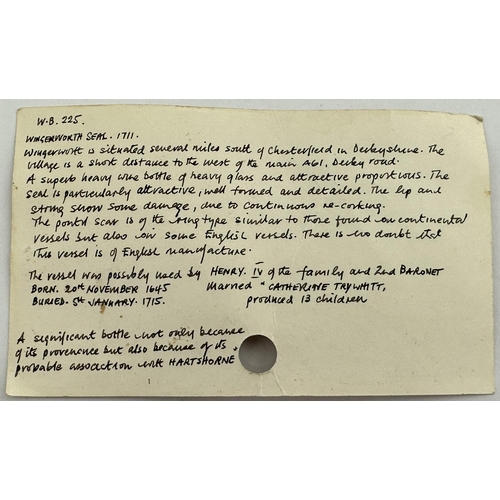 W.B. 225.
WINGERWORTH SEAL. 1711.
Wingerworth is situated several miles south of Chesterfield in Derbyshire. The
village is a short distance to the west of the main A61, Derby road.
A superb heavy wine bottle of heavy glass and attractive proportions. The
seal is particularly attractive, well formed and detailed. The lip and
string show some damage, due to continuous re-corking.
The pontil scar is of the ring type similar to those found on continental
vessels but also on some English vessels. There is no doubt that
this vessel is of English manufacture.
The vessel was possibly used by HENRY. IV of the family and 2nd BARONET
BORN. 20th NOVEMBER 1645 married "CATHERINE TRYWHITT,
BURIED. 5th JANUARY. 1715. produced 13 children
A significant bottle not only because
of its provenence but also because of its
probable association with HARTSHORNE